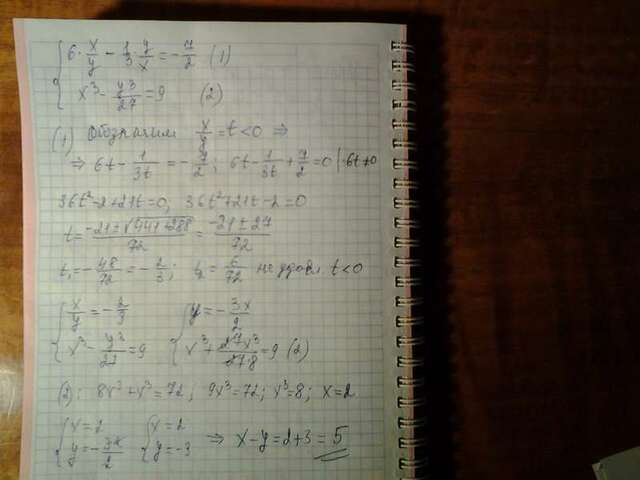 { 6·x/y − 1/3·y/x = −7/2 (1)
x³ − y³/27 = 9 (2)
(1) Обозначим x/y = t < 0 ⇒
⇒ 6t − 1/3t = −7/2; 6t − 1/3t + 7/2 = 0 | ·6t≠0
36t² − 2 + 21t = 0, 36t² + 21t − 2 = 0
t = −21 ± √441+288 / 72 = −21 ± 27 / 72
t₁ = −48/72 = −2/3; t₂ = 6/72 не удовл. t < 0
{ x/y = −2/3 { y = −3x/2
x³ − y³/27 = 9 x³ + 27x³/27·8 = 9 (2)
(2): 8x³ + x³ = 72; 9x³ = 72; x³ = 8; x = 2
{ x = 2 { x = 2 ⇒ x − y = 2 + 3 = 5
y = −3x/2 y = −3